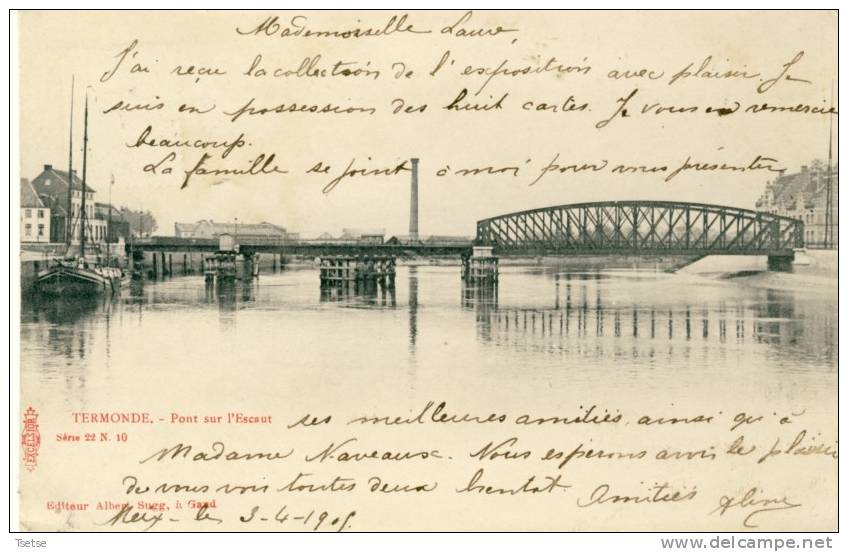 Mademoiselle Laure,
J'ai reçu la collection de l'exposition avec plaisir. Je
suis en possession des huit cartes. Je vous en remercie
beaucoup.
La famille se joint à moi pour vous présenter
TERMONDE. - Pont sur l'Escaut
Série 22 N. 10
EXCELSIOR
ses meilleures amitiés, ainsi qu'à
Madame Naveaux. Nous espérons avoir le plaisir
de vous voir toutes deux bientôt. Amitiés Aline
Editeur Albert Sugg, à Gand
le 3-4-1905
Tsetse
http://www.delcampe.net